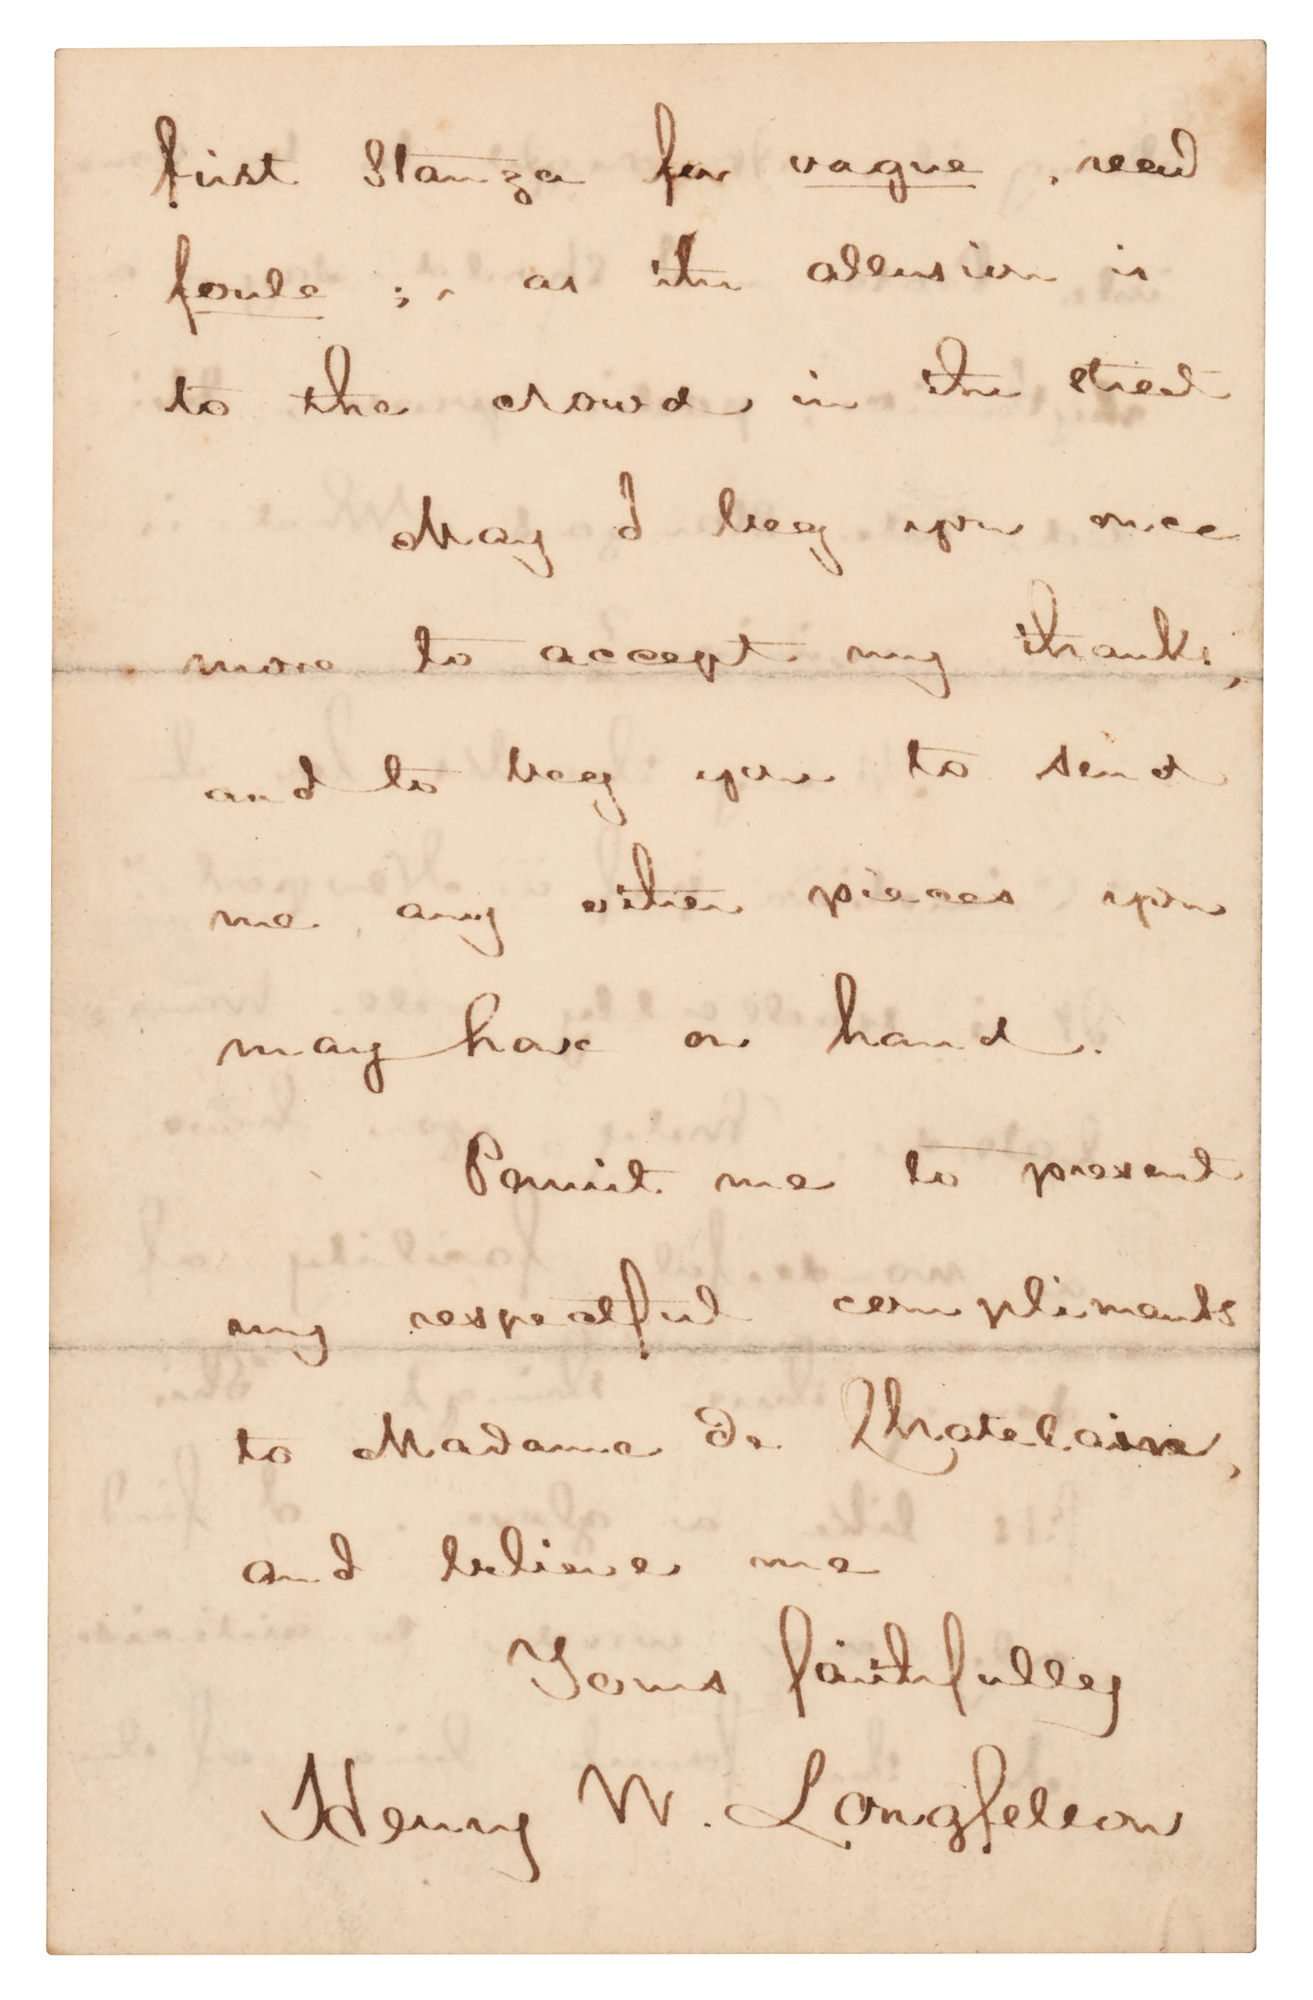 first Stanza for vague, read
foule; as the allusion is
to the crowd in the street
May I beg you once
more to accept my thanks,
and to beg you to send
me any other pieces you
may have on hand.
Permit me to present
my respectful compliments
to Madame de Chatelain,
and believe me
Yours faithfully
Henry W. Longfellow